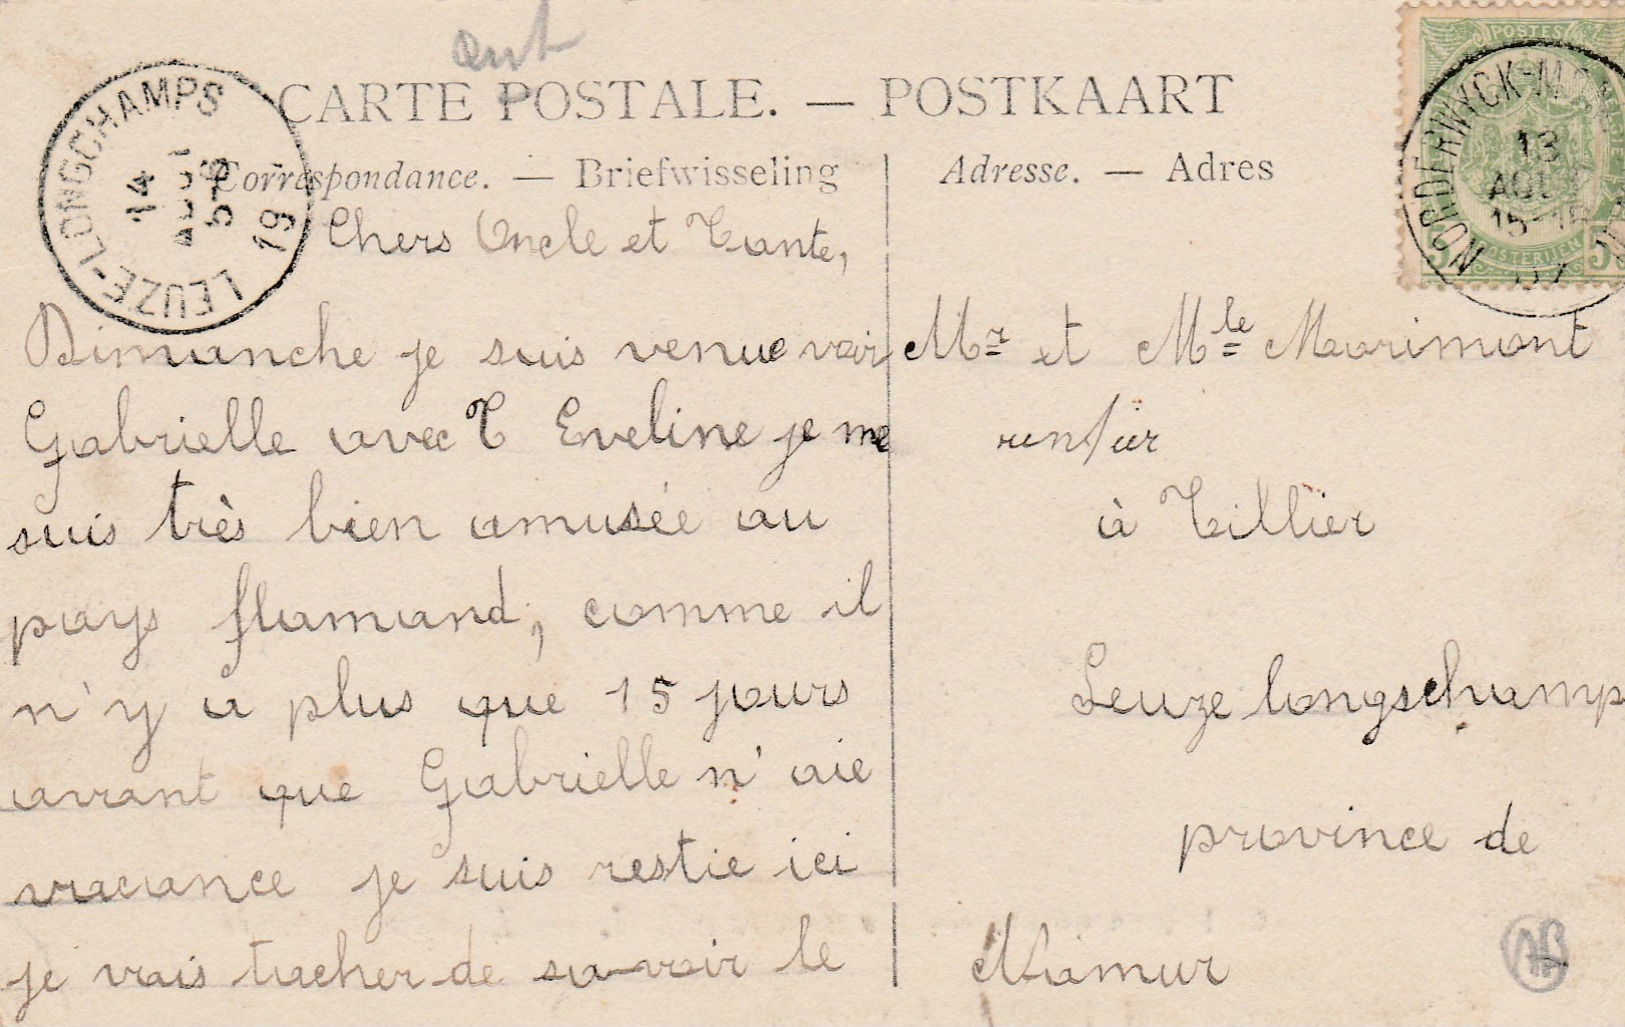 CARTE POSTALE. — POSTKAART
Correspondance. — Briefwisseling
Adresse. — Adres
LEUZE-LONGCHAMPS
14
AOUT
5-6
19
POSTES
NORDERWYCK-M
13
AOU
15-1
07
POSTERIJEN
5 5
Chers Oncle et Tante,
Dimanche je suis venue voir
Gabrielle avec T Eveline je me
suis très bien amusée au
pays flamand, comme il
n'y a plus que 15 jours
avant que Gabrielle n'aie
vacance je suis restie ici
je vais tacher de savoir le
Mr et Mle Marimont
rentier
à Tillier
Leuze longschamp
province de
Namur
AB